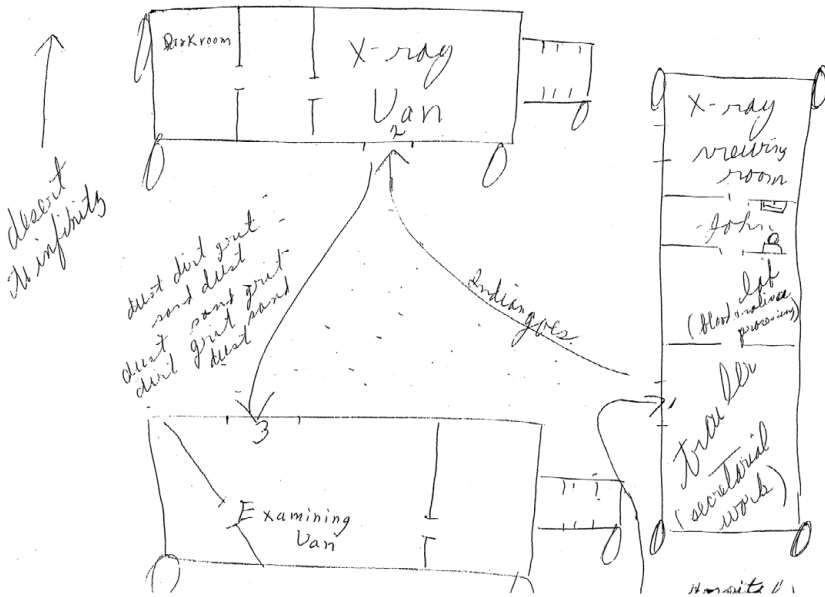 Darkroom
X-ray
Van
2
desert
to infinity
dust dirt grit
sand dust
dust sand grit
dirt grit sand
dust
Indian goes
X-ray
viewing
room
John
lab
(blood & saliva
processing)
1
trailer
(secretarial
work)
3
Examining
Van